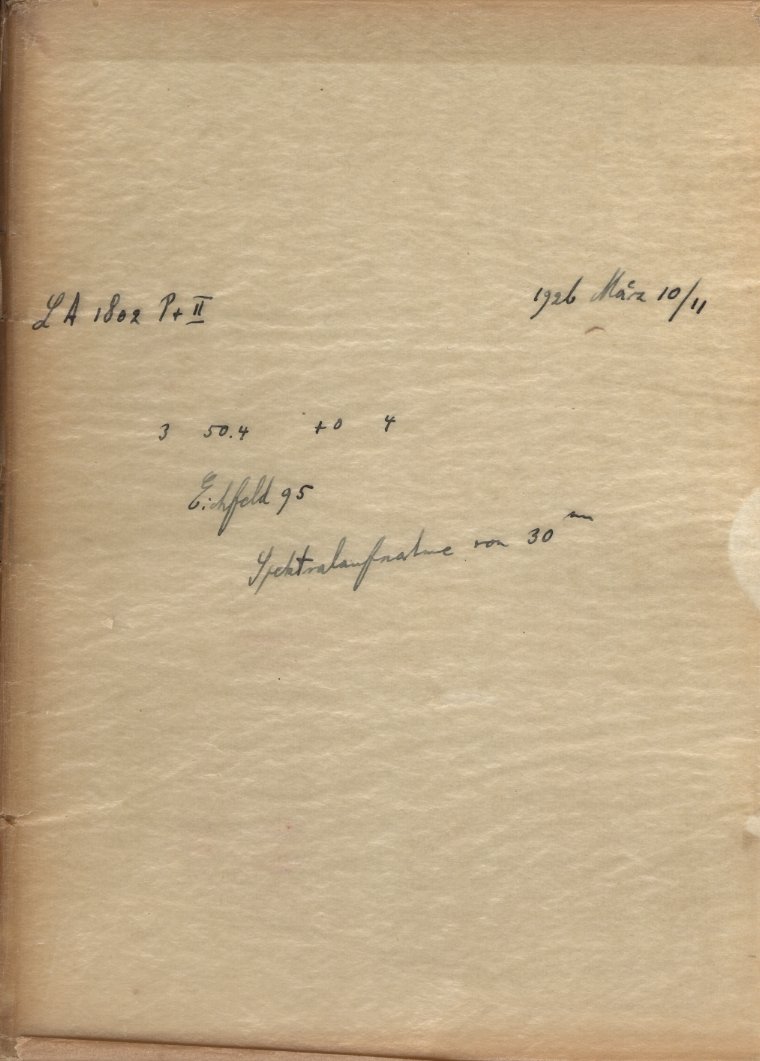 LA 1802 P+II 1926 März 10/11
3 50.4 +0 4
Eichfeld 95
Spektralaufnahme von 30 m